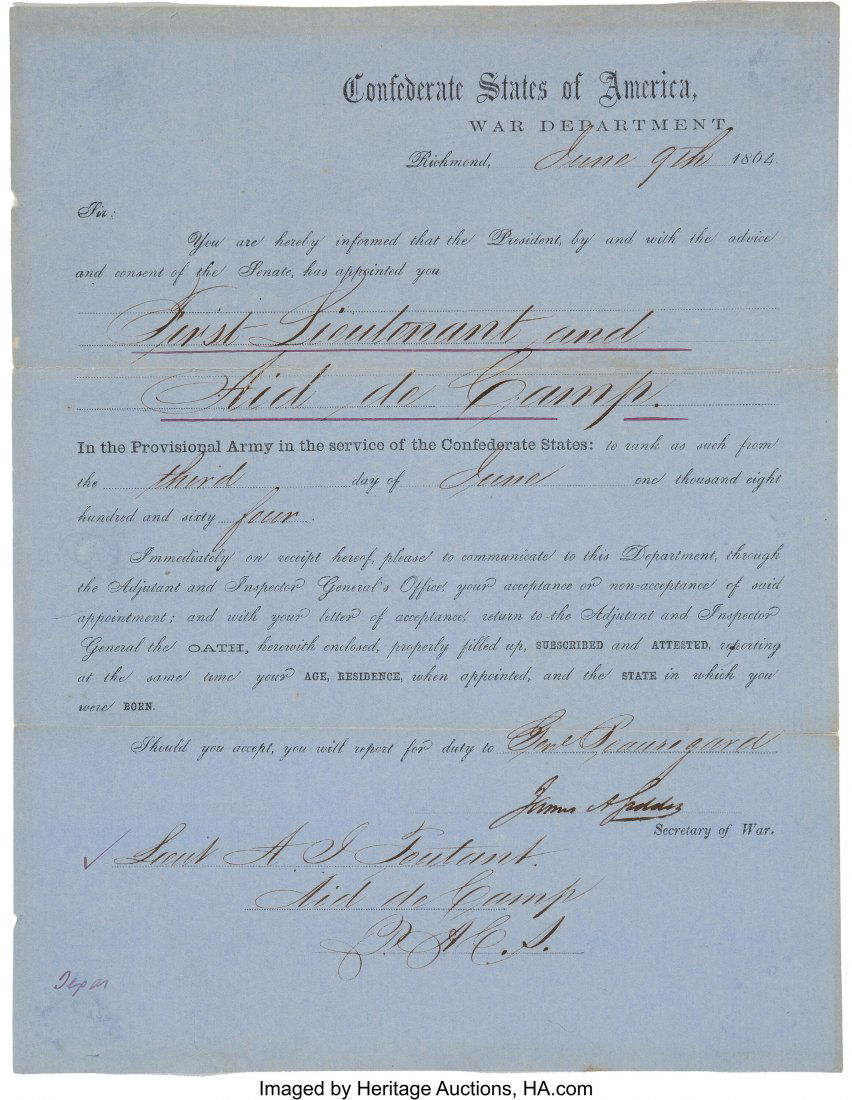 Confederate States of America,
WAR DEPARTMENT,
Richmond, June 9th 1864.
Sir:
You are hereby informed that the President, by and with the advice
and consent of the Senate, has appointed you
First Lieutenant and
Aid de Camp.
In the Provisional Army in the service of the Confederate States: to rank as such from
the third day of June one thousand eight
hundred and sixty four.
Immediately on receipt hereof, please to communicate to this Department, through
the Adjutant and Inspector General's Office, your acceptance or non-acceptance of said
appointment; and with your letter of acceptance, return to the Adjutant and Inspector
General the OATH, herewith enclosed, properly filled up, SUBSCRIBED and ATTESTED, reporting
at the same time your AGE, RESIDENCE, when appointed, and the STATE in which you
were BORN.
Should you accept, you will report for duty to Genl Beauregard
James A Seddon
Secretary of War.
Lieut A J Toutant.
Aid de Camp
P. A. C. S.
Texas
Imaged by Heritage Auctions, HA.com